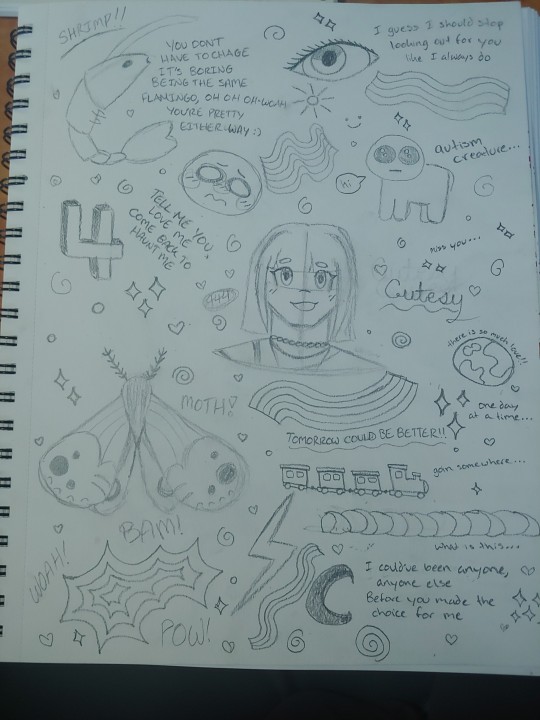 SHRIMP!!
YOU DONT
HAVE TO CHAGE
IT'S BORING
BEING THE SAME
FLAMINGO, OH OH OH-WOAH
YOU'RE PRETTY
EITHER WAY :)
I guess I should stop
looking out for you
like I always do
hi
autism
creature...
4
TELL ME YOU
LOVE ME
COME BACK TO
HAUNT ME
miss you...
Cutesy
444
there is so much love!!
MOTH!
one day
at a time...
TOMORROW COULD BE BETTER!!
goin somewhere...
what is this...
BAM!
WOAH!
POW!
I could've been anyone,
anyone else
Before you made the
choice for me